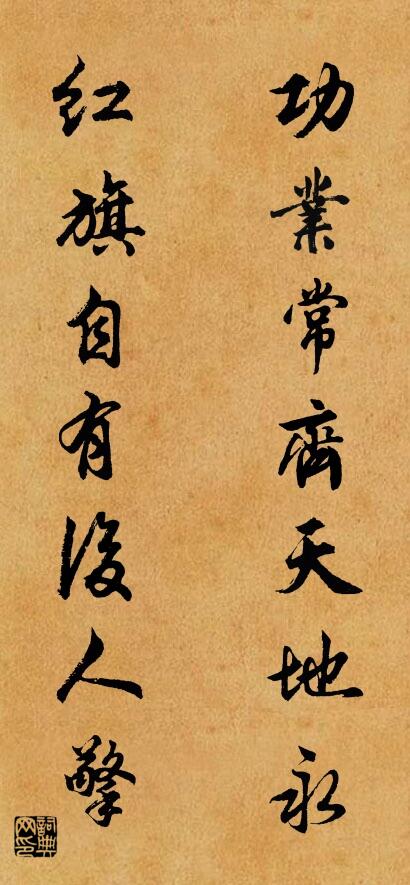 功業常齊天地永
紅旗自有後人擎
詞典网印